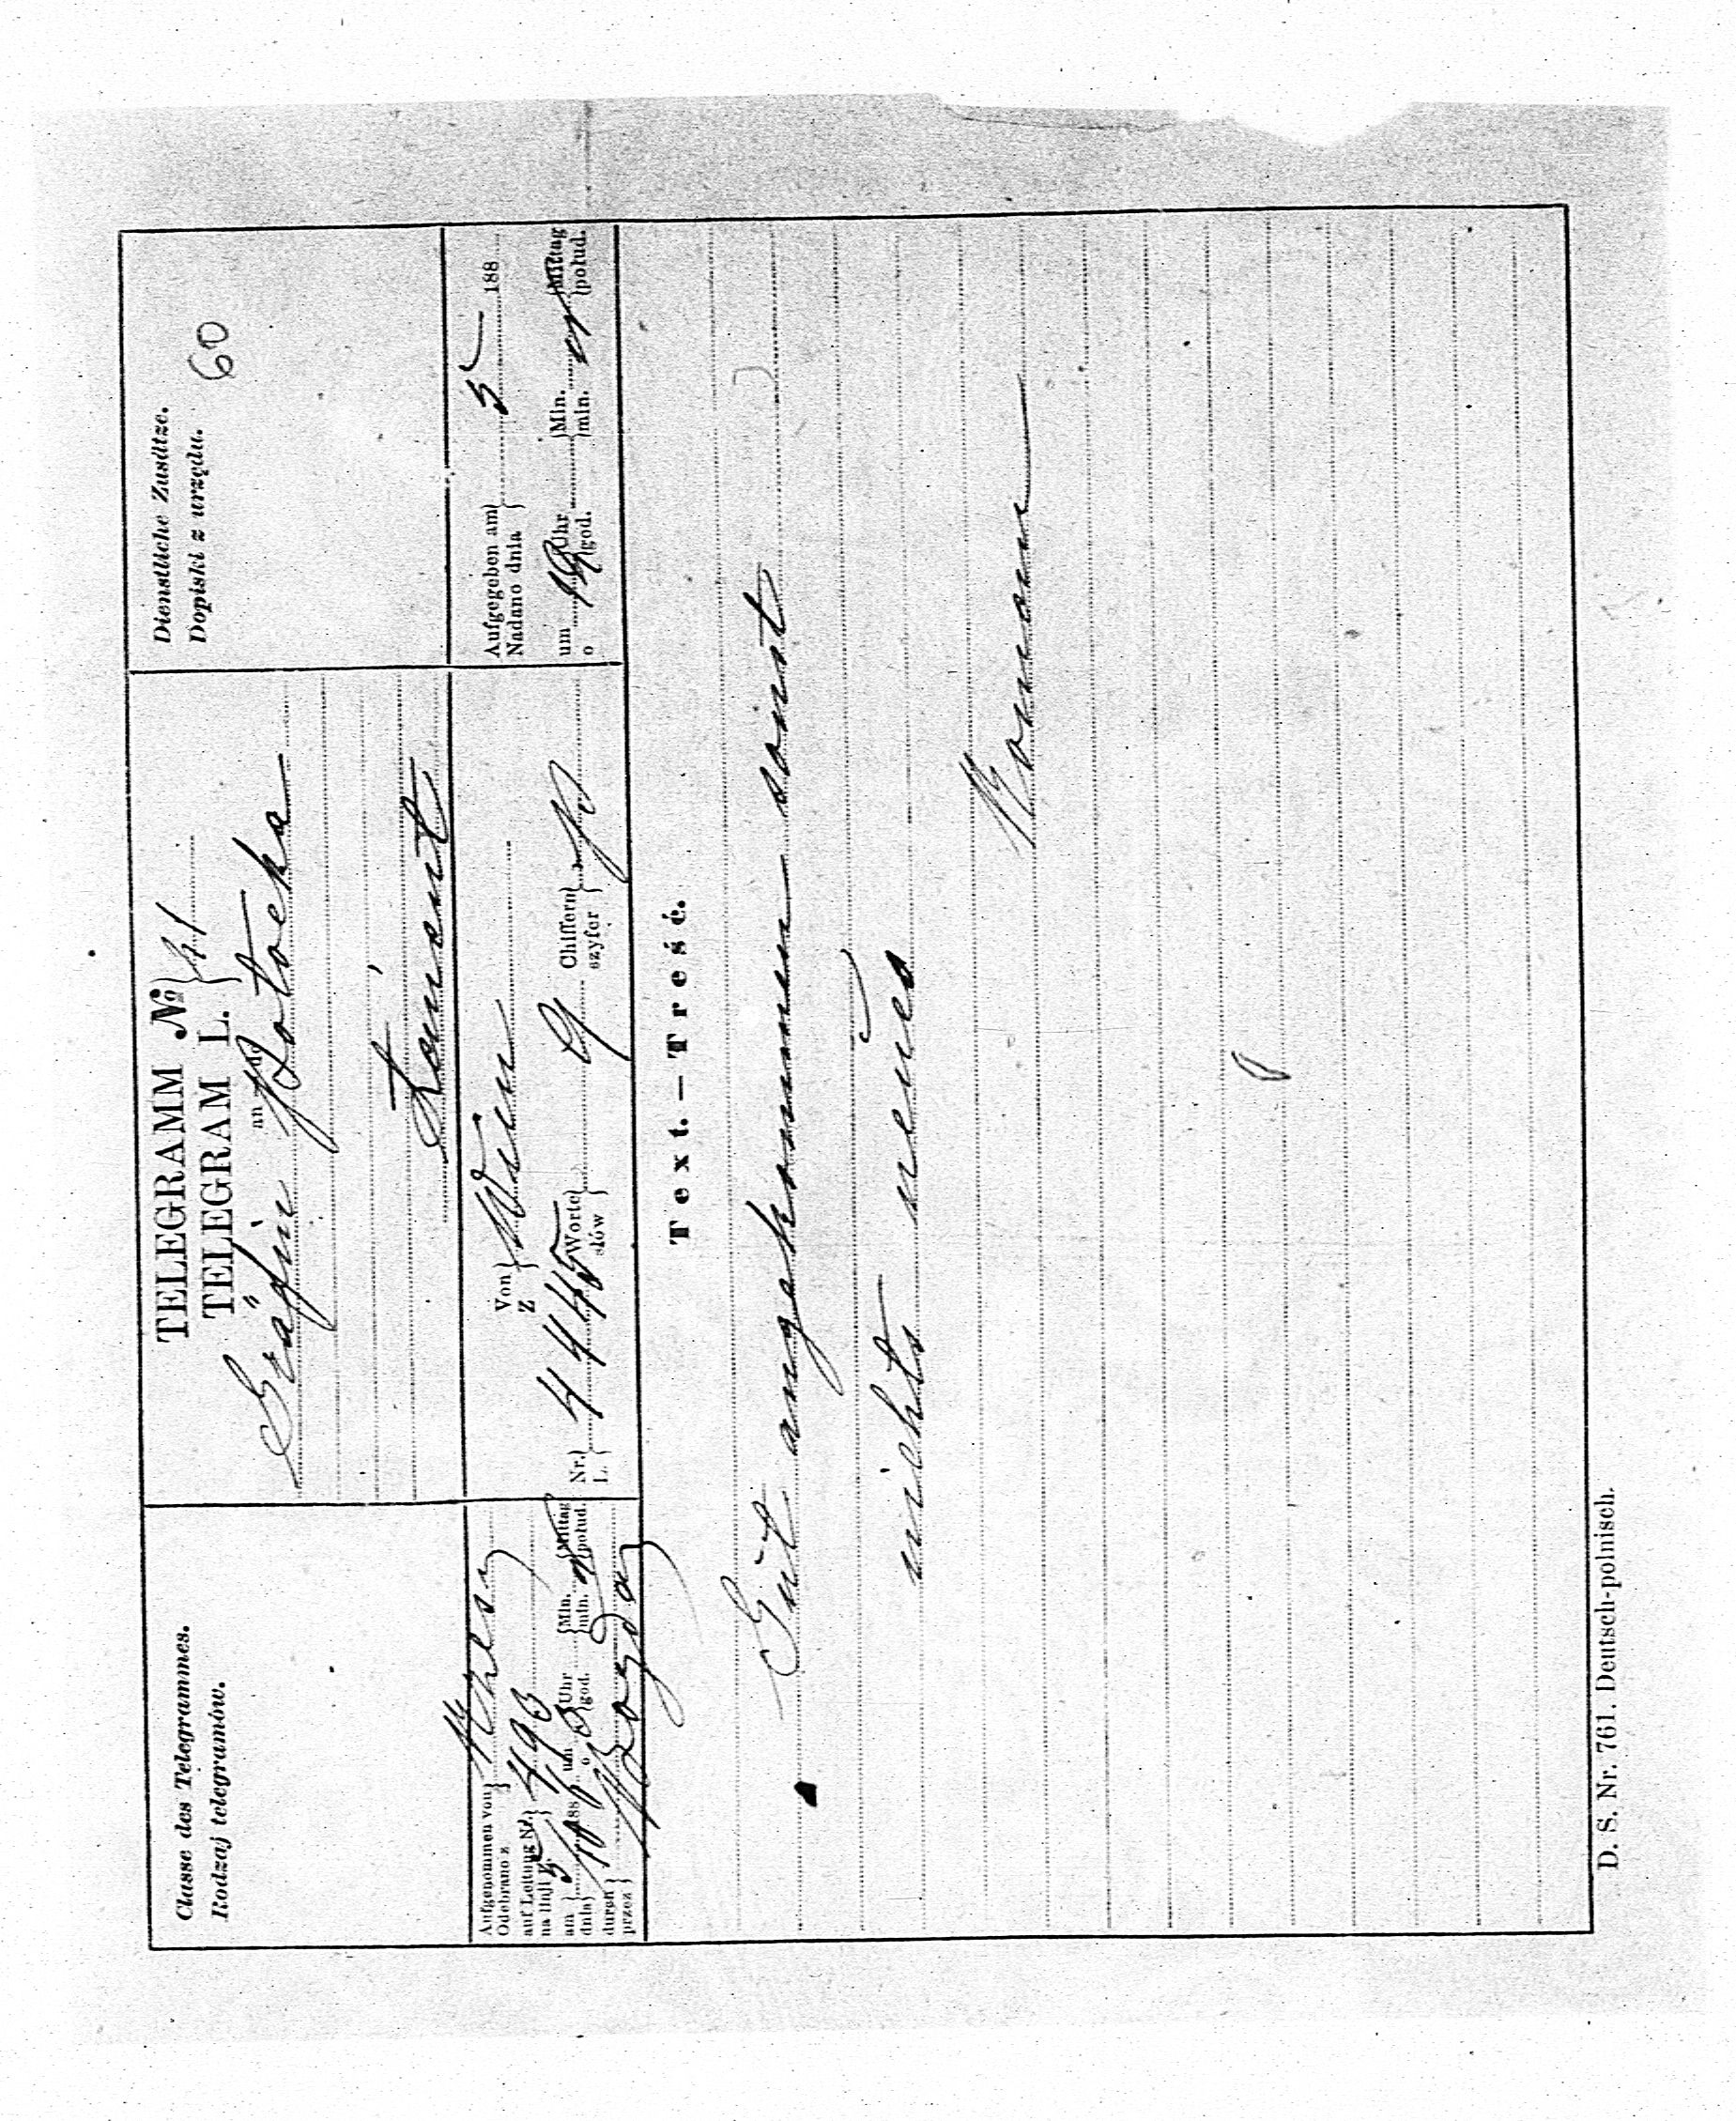 Classe des Telegrammes.
Rodzaj telegramów.
TELEGRAMM №
TELEGRAM L.
an do
Gräfin Potocka
Łańcut
Dienstliche Zusätze.
Dopiski z urzędu.
60
Aufgenommen von
Odebrano z
auf Leitung Nr.
na linji L.
493
am 5/10 1886 um 3 Uhr Min. Mittag
dnia o god. min. połud.
durch
przez
Von Wien
Z
Nr. 4445 Worte 9 Chiffern
L. słów szyfer
Aufgegeben am 5 188
Nadano dnia
um 12 Uhr Min. Mittag
o god. min. połud.
Text. — Treść.
Gut angekommen sonst
nichts neues
Roman
D. S. Nr. 761. Deutsch-polnisch.